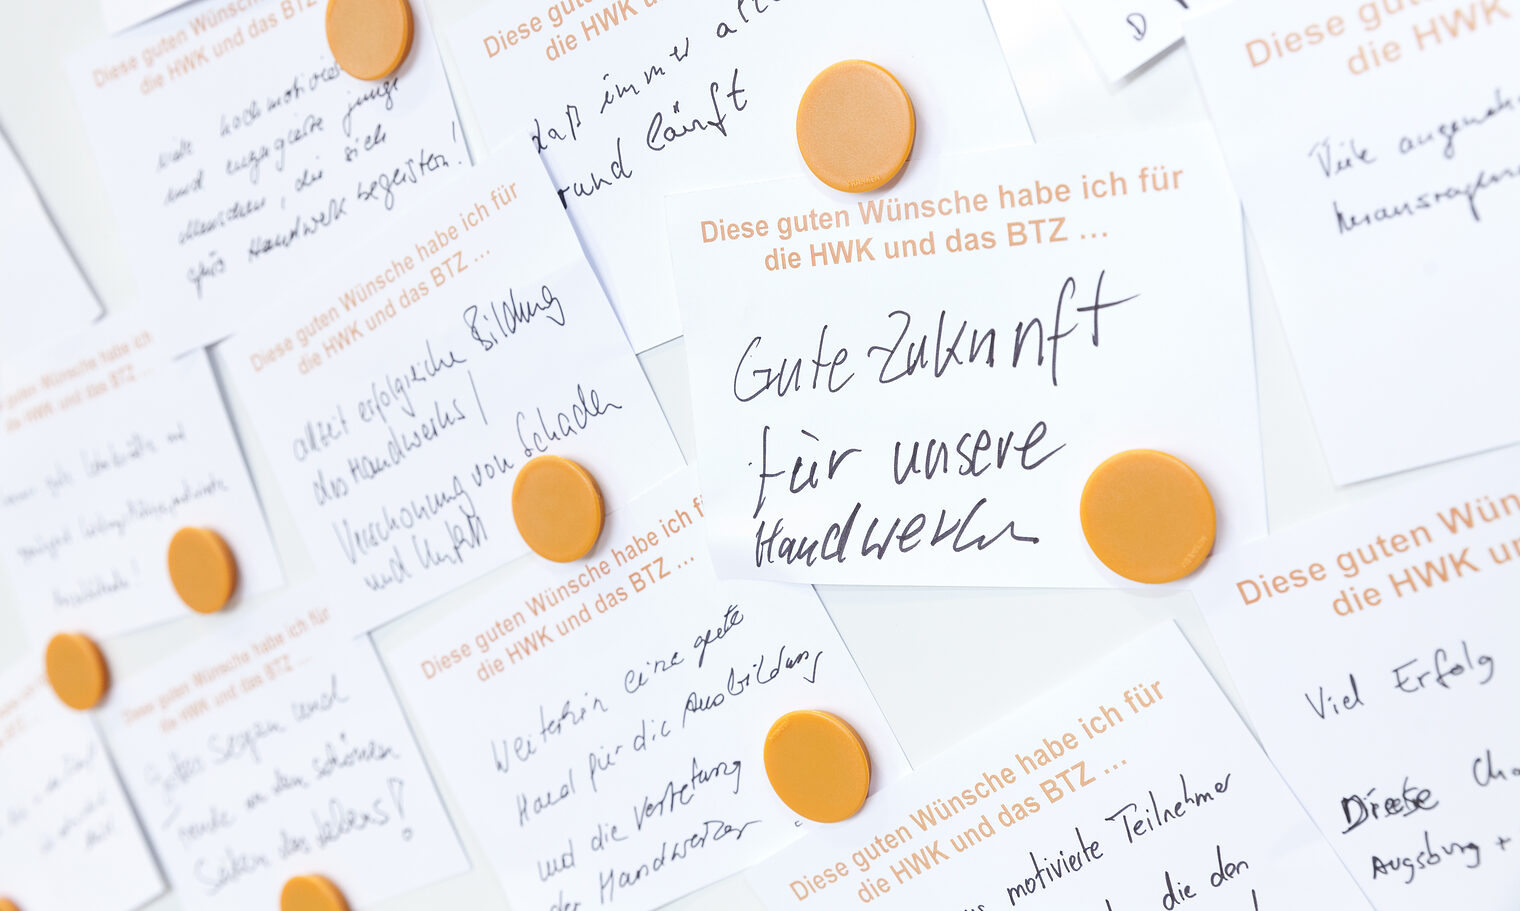 Diese guten Wünsche
die HWK und das BTZ
hochmotivie
und engagierte junge
Menschen, die sich
fürs Handwerk begeistern!
Diese guten
die HWK u
daß immer alle
rund läuft
D
Diese gut
die HWK
Viele angeneh
herausragend
Diese guten Wünsche habe ich für
die HWK und das BTZ ...
Gute Zukunft
für unsere
Handwerker
Diese guten Wünsche habe ich für
die HWK und das BTZ ...
allzeit erfolgreiche Bildung
des Handwerks!
Verschonung von Schäden
und Unfall
guten Wünsche habe ich
die HWK und das BTZ ...
immer gute und
Diese guten Wünsche habe ich für
die HWK und das BTZ ...
Gottes Segen und
Freude an den schönen
Seiten des Lebens!
Diese guten Wünsche habe ich f
die HWK und das BTZ ...
Weiterhin eine gute
Hand für die Ausbildung
und die Vertretung
der Handwerker
Diese guten Wünsche habe ich für
die HWK und das BTZ ...
motivierte Teilnehmer
die den
Diese guten Wün
die HWK un
Viel Erfolg
Direkte Cha
Augsburg +